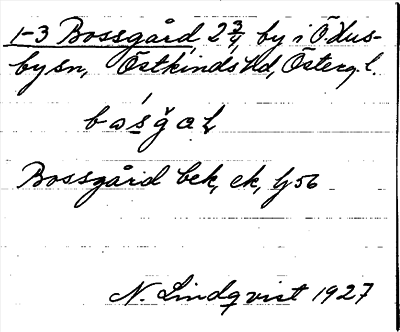 1-3 Bossgård 2 3/4 by i Ö Hus-
bysn, Östkinds hd, Österg. l.
Bossgård bek, ek, lj 56
N. Lindqvist 1927